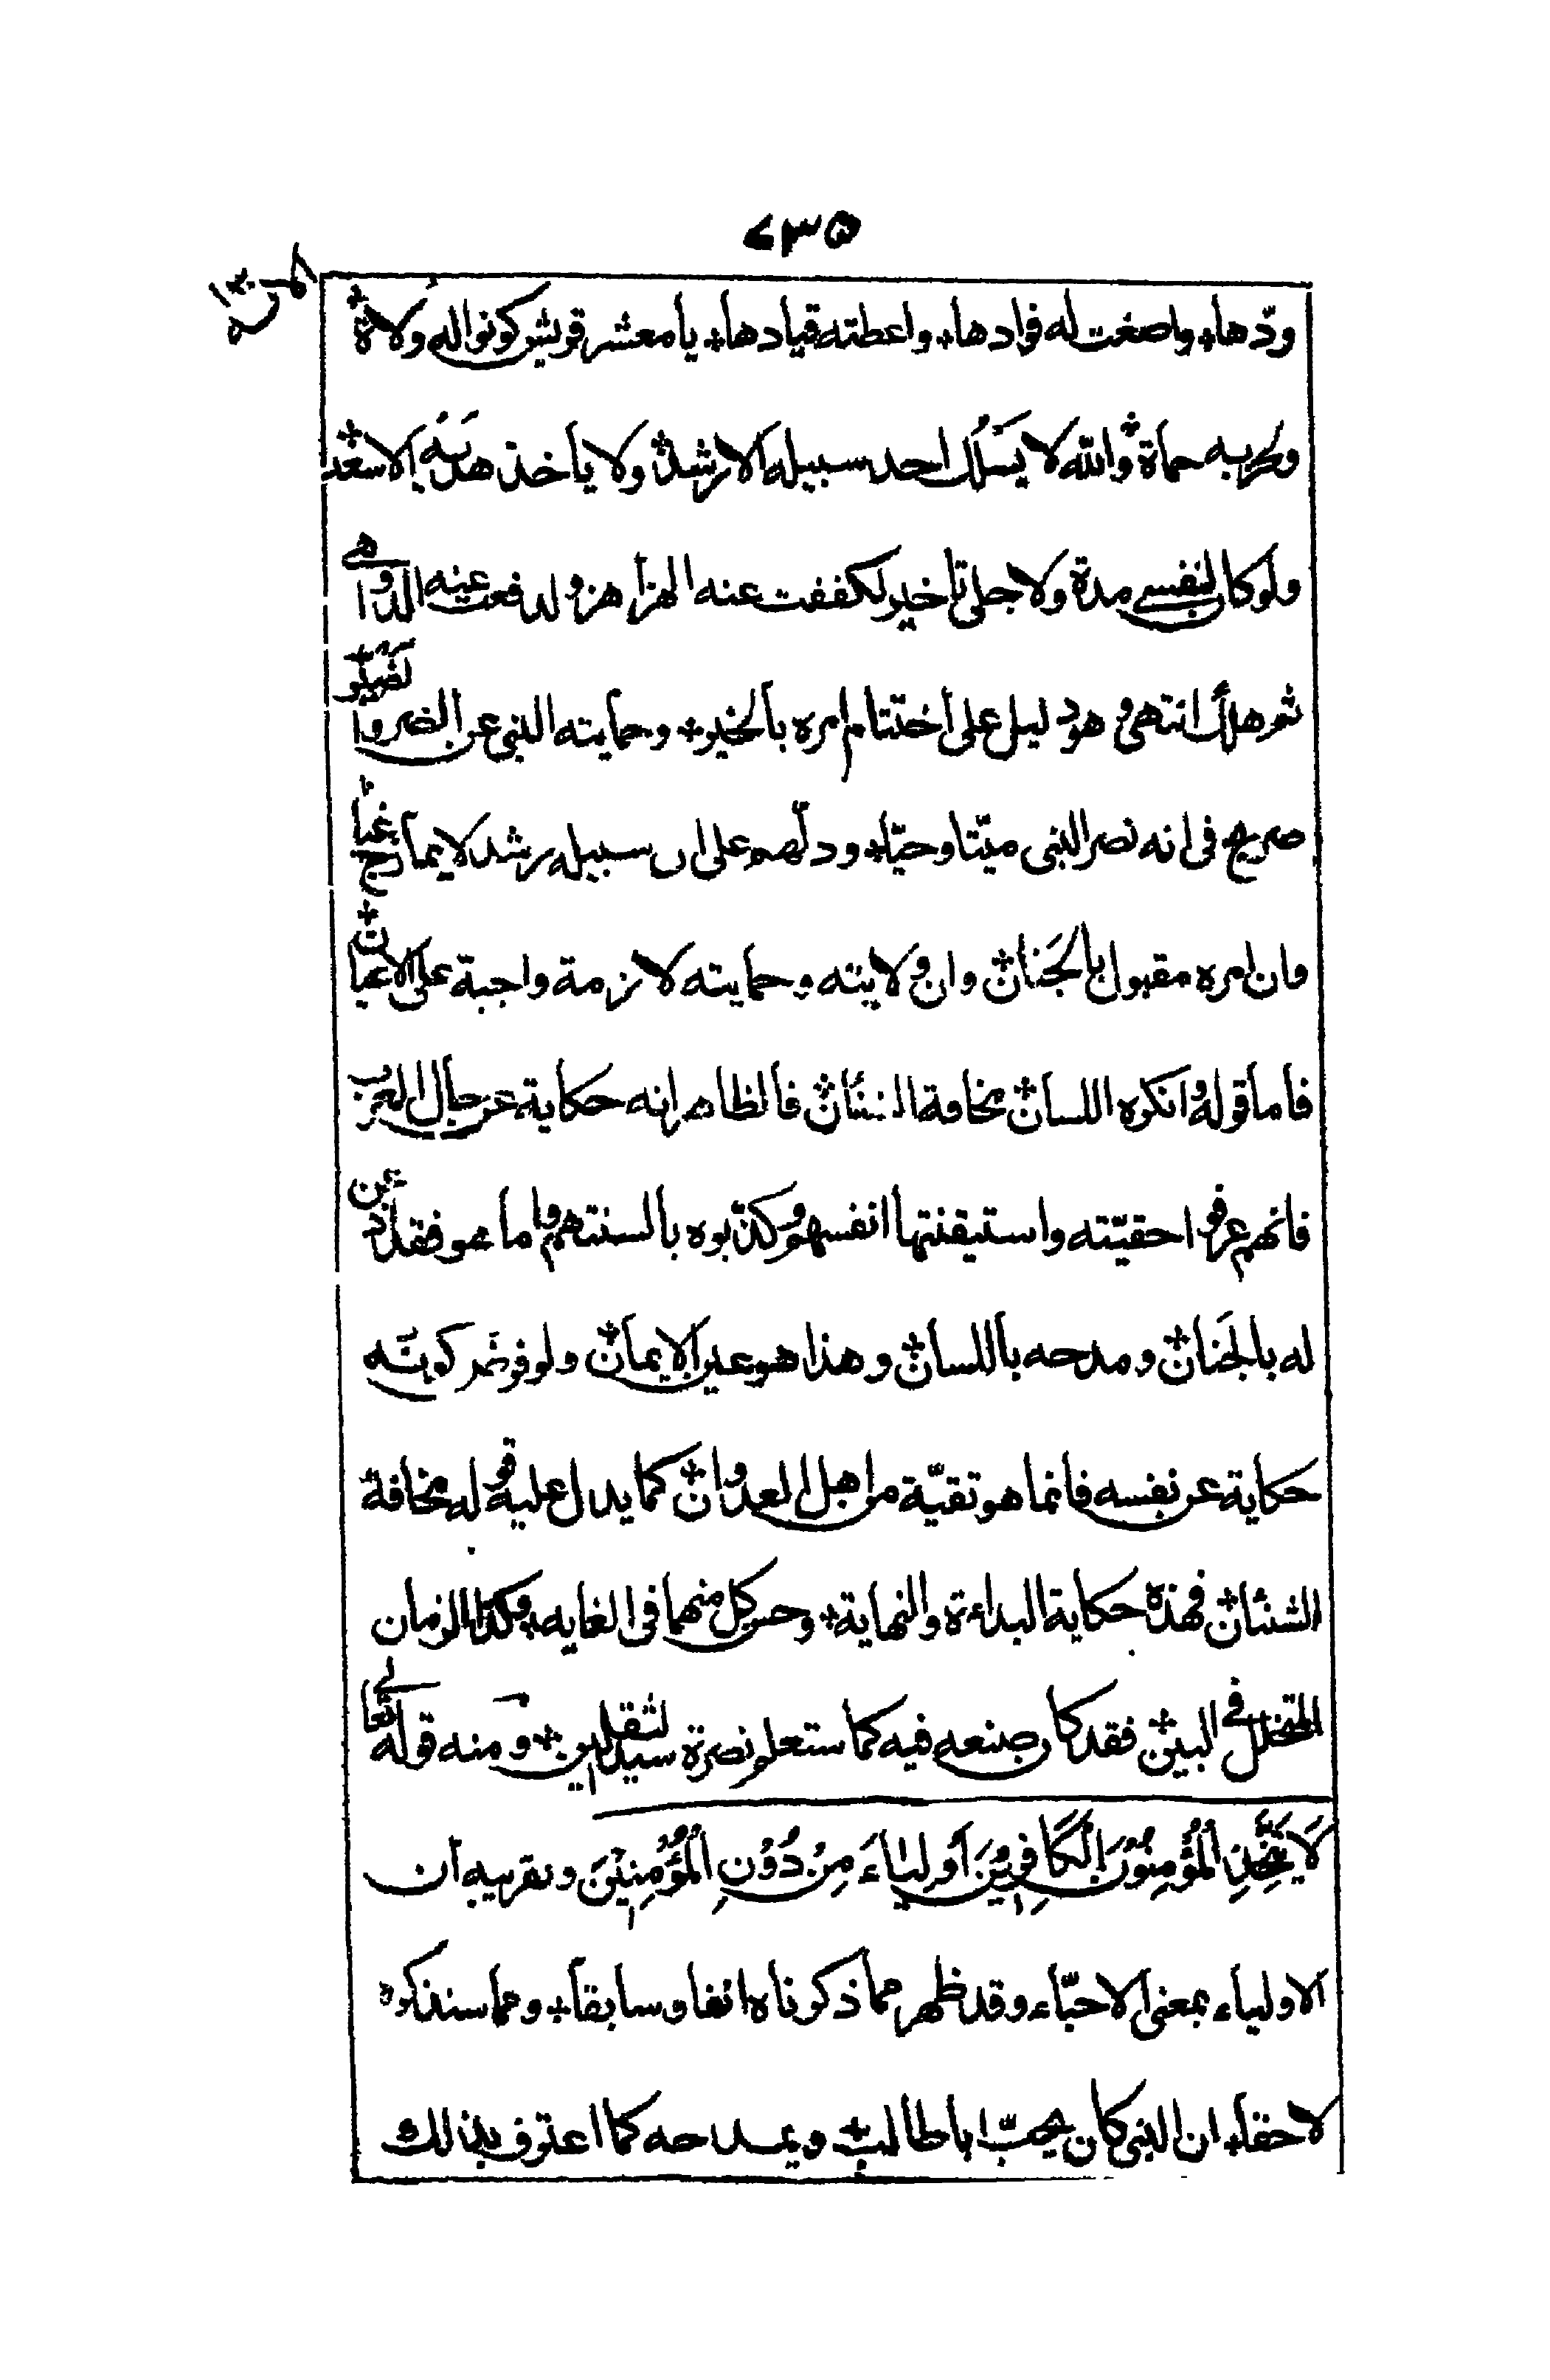 ٢٣٥
ودّها؞ واصغت له فوادها؞ واعطته قيادها؞ يا معشر قريش كونوا له ولاة؞
ولحزبه حماة؞ والله لا يسلك احد سبيله الا رشد؞ ولا يأخذ هديه الا سعد؞
ولو كان لنفسي مدة ولاجلي تأخير لكففت عنه الهزاهز ولدفعت عنه الدواهي
ثم هلك انتهى وهو دليل على اختتام امره بالخير؞ وحمايته النبي عن الضر والضير؞
صريح في انه نصر النبي ميّتا وحيّا؞ ودلّهم على ان سبيله رشد لا يمازج غيا؞
وان امره مقبول بالجَنان؞ وان ولايته وحمايته لازمة واجبة على الاعيان؞
فاما قوله وانكره اللسان؞ مخافة الشنئان؞ فالظاهر انه حكاية عن حال العرب
فانهم عرفوا حقيّته واستيقنتها انفسهم وكذّبوه بالسنتهم واما هو فقد اذعن
له بالجَنان؞ ومدحه باللسان؞ وهذا هو عين الايمان؞ ولو فرض كونه
حكاية عن نفسه فانما هو تقيّة من اهل العدوان؞ كما يدل عليه قوله مخافة
الشنئان؞ فهذه حكاية البداءة والنهاية؞ وحسن كل منهما في الغاية؞ وكذا الزمان
المتخلل في البين؞ فقد كان صنعه فيه كما ستعلم نصرة سيد الثقلين؞ ومنه قوله تعالى
لَا يَتَّخِذِ الْمُؤْمِنُوْنَ الْكَافِرِيْنَ اَوْلِيَاءَ مِنْ دُوْنِ الْمُؤْمِنِيْنَ وتقريبه ان
الاولياء بمعنى الاحبّاء وقد ظهر مما ذكرناه انفا وسابقا؞ ومما سنذكره
لاحقا؞ ان النبي كان يحبّ ابا طالب؞ ويمدحه كما اعترف بذالك